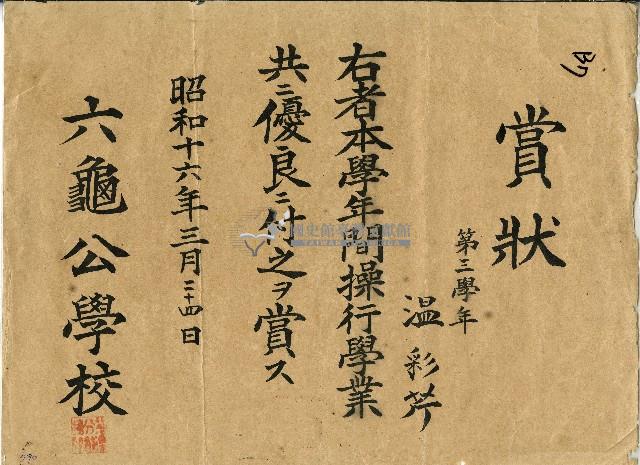 賞狀
第三學年
溫彩芹
右者本學年間操行學業
共ニ優良ニ付之ヲ賞ス
昭和十六年三月二十四日
六龜公學校